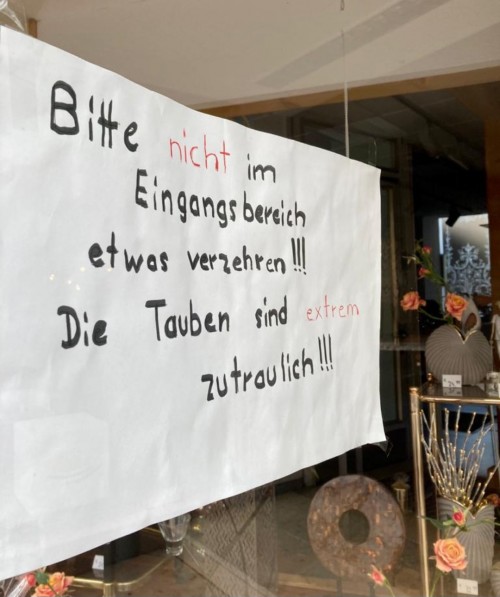 Bitte nicht im
Eingangsbereich
etwas verzehren!!!
Die Tauben sind extrem
zutraulich!!!